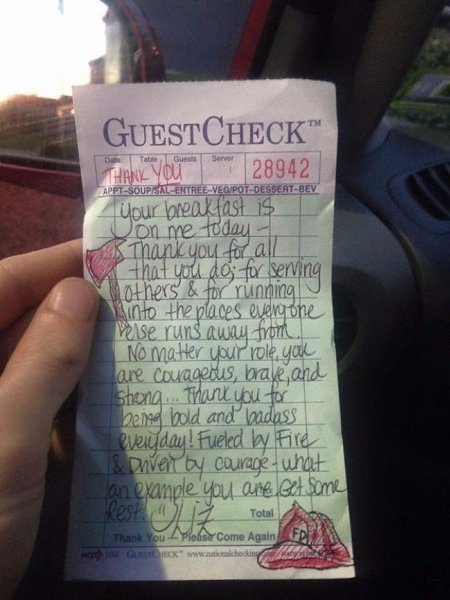 GUESTCHECK™
Date Table Guests Server
THANK YOU 1 28942
APPT-SOUP/SAL-ENTREE-VEG/POT-DESSERT-BEV
your breakfast is
on me today -
Thank you for all
that you do; for serving
others & for running
into the places everyone
else runs away from.
No matter your role, you
are courageous, brave, and
strong... Thank you for
being bold and badass
everyday! Fueled by Fire
& Driven by courage - what
an example you are. Get some
Rest! LIZ
Total
FD
Thank You Please Come Again
104 GUESTCHECK™ www.nationalchecking.com